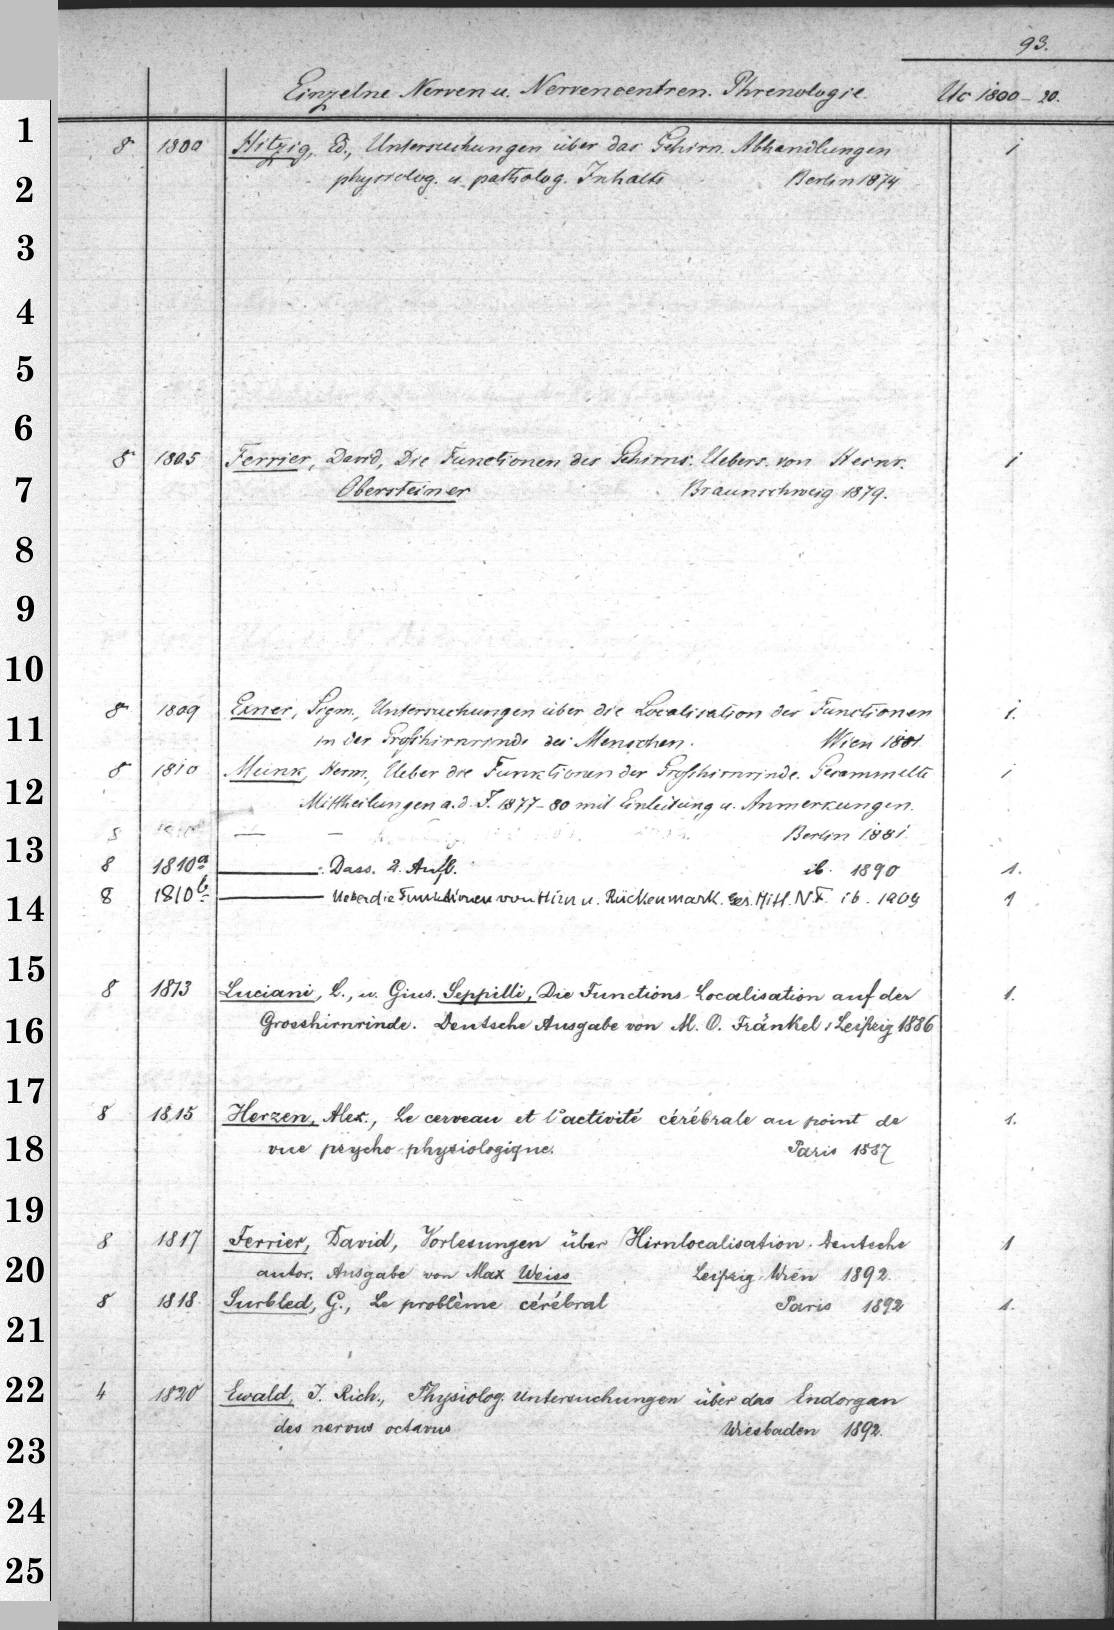 93.
Einzelne Nerven u. Nervencentren. Phrenologie. Uc 1800-20.
1
8 1800 Hitzig, Ed., Untersuchungen über das Gehirn. Abhandlungen 1
2
physiolog. u. patholog. Inhalts Berlin 1874
3
4
5
6
8 1805 Ferrier, David, Die Functionen des Gehirns. Uebers. von Heinr. 1
7
Obersteiner Braunschweig 1879.
8
9
10
8 1809 Exner, Sigm., Untersuchungen über die Localisation der Functionen 1.
11
in der Großhirnrinde des Menschen. Wien 1881
12
8 1810 Munk, Herm., Ueber die Funktionen der Großhirnrinde. Gesammelte 1
Mittheilungen a. d. J. 1877-80 mit Einleitung u. Anmerkungen.
13
8 — — Berlin 1881
8 1810a —: Dass. 2. Aufl. ib. 1890 1.
14
8 1810b — Ueber die Funktionen von Hirn u. Rückenmark. Ges. Mitt. N F. ib. 1909 1
15
8 1813 Luciani, L., u. Gius. Seppilli, Die Functions-Localisation auf der 1.
16
Grosshirnrinde. Deutsche Ausgabe von M. O. Fränkel, Leipzig 1886
17
8 1815 Herzen, Alex., Le cerveau et l'activité cérébrale au point de 1.
18
vue psycho-physiologique. Paris 1887
19
8 1817 Ferrier, David, Vorlesungen über Hirnlocalisation. Deutsche 1
20
autor. Ausgabe von Max Weiss Leipzig Wien 1892.
8 1818 Surbled, G., Le problème cérébral Paris 1892 1.
21
22
4 1820 Ewald, J. Rich., Physiolog. Untersuchungen über das Endorgan
23
des nervus octavus Wiesbaden 1892.
24
25